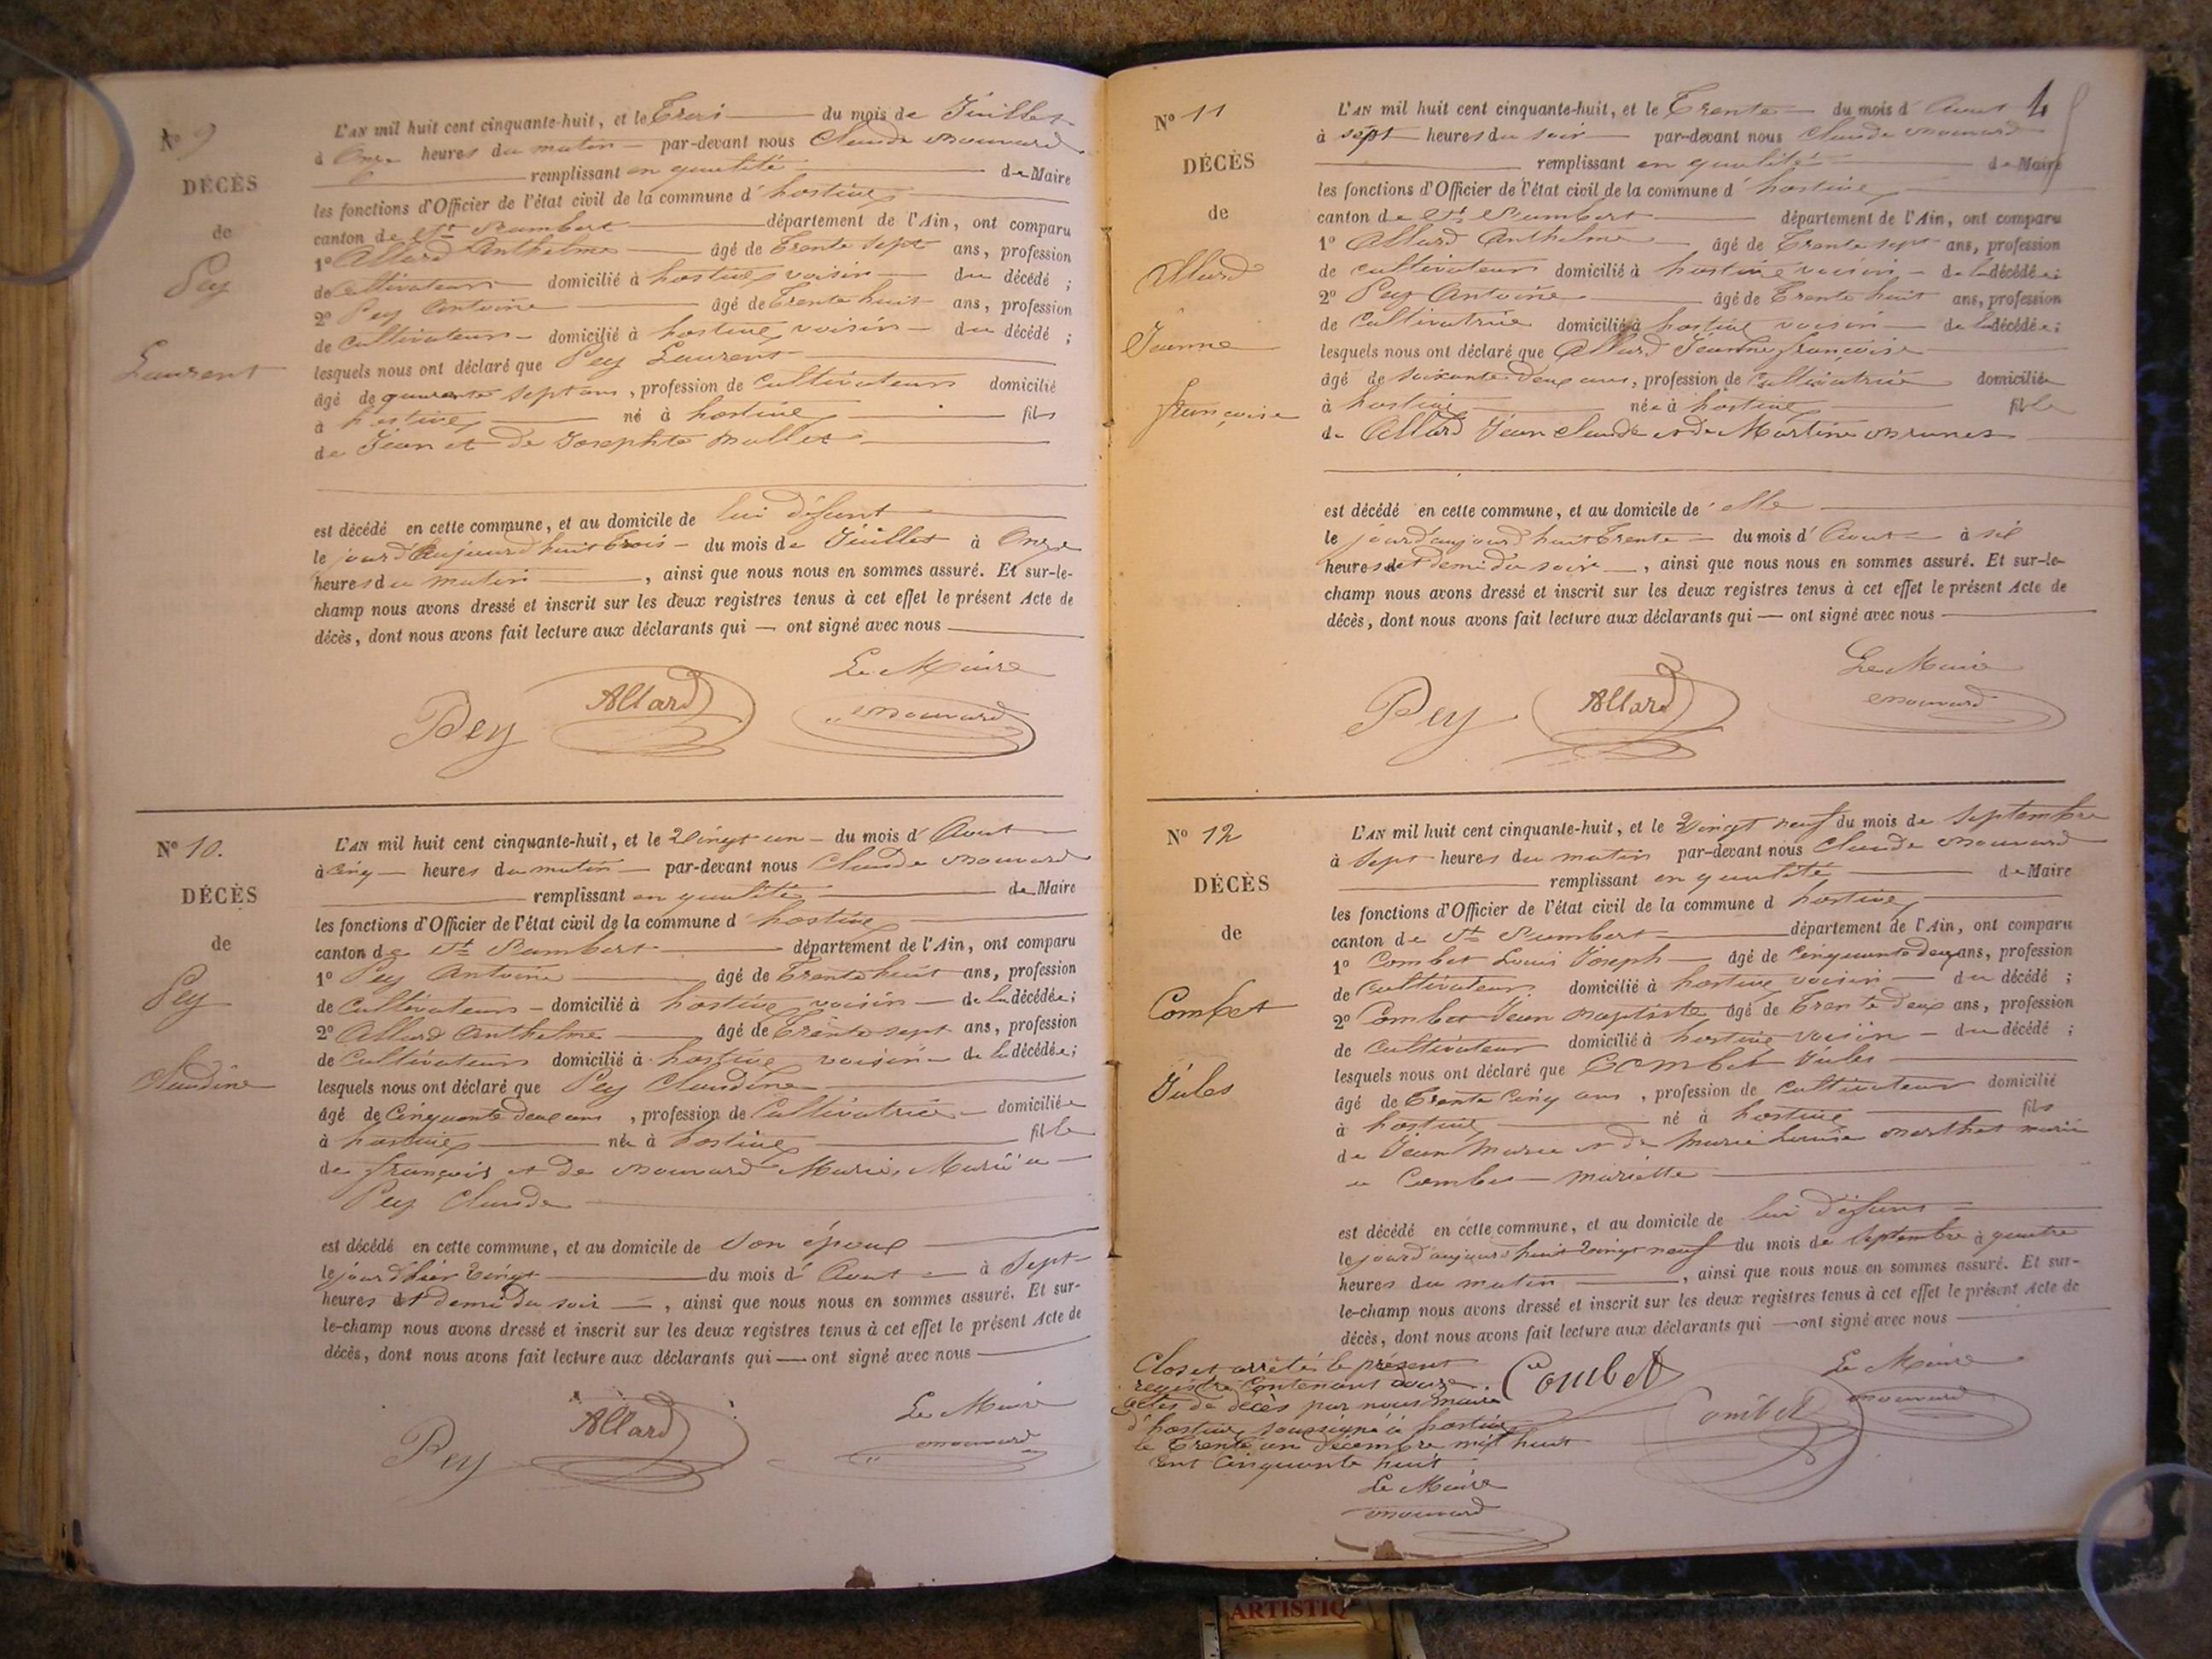 N° 9
DÉCÈS
de
Pey
Laurent
L'AN mil huit cent cinquante-huit, et le Trois du mois de Juillet
à Onze heures du matin par-devant nous Claude
remplissant en qualité de Maire
les fonctions d'Officier de l'état civil de la commune d'hostiaz
canton de St Rambert département de l'Ain, ont comparu
1° Allard Anthelme âgé de Trente sept ans, profession
de cultivateur domicilié à hostiaz voisin du décédé ;
2° Pey Antoine âgé de Trente huit ans, profession
de Cultivateur domicilié à hostiaz voisin du décédé ;
lesquels nous ont déclaré que Pey Laurent
âgé de quarante sept ans, profession de Cultivateur domicilié
à hostiaz né à hostiaz fils
de Jean et de Josephte
est décédé en cette commune, et au domicile de lui défunt
le jour d'aujourd'huit trois du mois de Juillet à Onze
heures du matin, ainsi que nous nous en sommes assuré. Et sur-le-
champ nous avons dressé et inscrit sur les deux registres tenus à cet effet le présent Acte de
décès, dont nous avons fait lecture aux déclarants qui — ont signé avec nous
Le Maire
Pey Allard
N° 10.
DÉCÈS
de
Pey
Claudine
L'AN mil huit cent cinquante-huit, et le Vingt un du mois d'Aout
à Cinq heures du matin par-devant nous Claude
remplissant en qualité de Maire
les fonctions d'Officier de l'état civil de la commune d'hostiaz
canton de St Rambert département de l'Ain, ont comparu
1° Pey Antoine âgé de Trente huit ans, profession
de Cultivateur domicilié à hostiaz voisin de la décédée ;
2° Allard Anthelme âgé de Trente sept ans, profession
de Cultivateur domicilié à hostiaz voisin de la décédée ;
lesquels nous ont déclaré que Pey Claudine
âgé de Cinquante deux ans, profession de Cultivatrice domiciliée
à hostiaz née à hostiaz fille
de françois et de Marie, Mariée a
Pey Claude
est décédé en cette commune, et au domicile de son époux
le jour d'hier vingt du mois d'Aout à Sept
heures et demi du soir, ainsi que nous nous en sommes assuré. Et sur-
le-champ nous avons dressé et inscrit sur les deux registres tenus à cet effet le présent Acte de
décès, dont nous avons fait lecture aux déclarants qui — ont signé avec nous
Le Maire
Pey Allard
4
N° 11
DÉCÈS
de
Allard
Jeanne
françoise
L'AN mil huit cent cinquante-huit, et le Trente du mois d'Aout
à sept heures du soir par-devant nous Claude
remplissant en qualité de Maire
les fonctions d'Officier de l'état civil de la commune d'hostiaz
canton de St Rambert département de l'Ain, ont comparu
1° Allard Anthelme âgé de Trente sept ans, profession
de cultivateur domicilié à hostiaz voisin de la décédée ;
2° Pey Antoine âgé de Trente huit ans, profession
de Cultivatrice domicilié à hostiaz voisin de la décédée ;
lesquels nous ont déclaré que Allard Jeanne françoise
âgé de soixante deux ans, profession de Cultivatrice domiciliée
à hostiaz née à hostiaz fille
de Allard Jean Claude et de Martine
est décédé en cette commune, et au domicile d'elle
le jour d'aujourd'huit Trente du mois d'Aout à six
heures et demi du soir, ainsi que nous nous en sommes assuré. Et sur-le-
champ nous avons dressé et inscrit sur les deux registres tenus à cet effet le présent Acte de
décès, dont nous avons fait lecture aux déclarants qui — ont signé avec nous
Le Maire
Pey Allard
N° 12
DÉCÈS
de
Combet
Jules
L'AN mil huit cent cinquante-huit, et le Vingt neuf du mois de Septembre
à Sept heures du matin par-devant nous Claude
remplissant en qualité de Maire
les fonctions d'Officier de l'état civil de la commune d hostiaz
canton de St Rambert département de l'Ain, ont comparu
1° Combet Louis Joseph âgé de Cinquante deux ans, profession
de Cultivateur domicilié à hostiaz voisin du décédé ;
2° Combet Jean Baptiste âgé de Trente deux ans, profession
de Cultivateur domicilié à hostiaz voisin du décédé ;
lesquels nous ont déclaré que Combet Jules
âgé de Trente Cinq ans, profession de Cultivateur domicilié
à hostiaz né à hostiaz fils
de Jean Marie et de Marie Louise marié
a Combet mariette
est décédé en cette commune, et au domicile de lui défunt
le jour d'aujourd'huit vingt neuf du mois de septembre à quatre
heures du matin, ainsi que nous nous en sommes assuré. Et sur-
le-champ nous avons dressé et inscrit sur les deux registres tenus à cet effet le présent Acte de
décès, dont nous avons fait lecture aux déclarants qui — ont signé avec nous
Le Maire
Combet Combet
Clos et arrêtés le présent
registre Contenant douze
actes de décès par nous maire
d'hostiaz soussigné à hostiaz
le Trente un décembre mil huit
cent Cinquante huit
Le Maire
ARTISTIQ